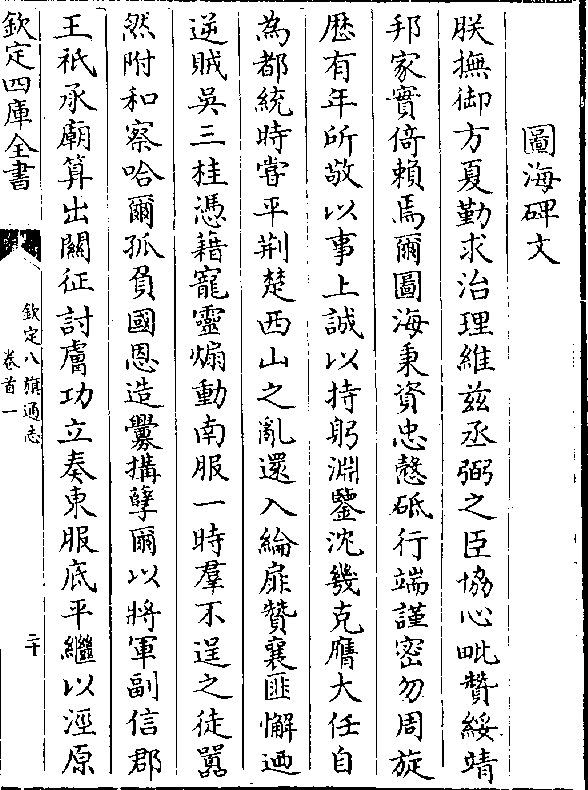 圖海碑文
朕撫御方夏勤求治理維兹丞弼之臣協心毗贊綏靖
邦家實倚賴焉爾圖海秉資忠慤砥行端謹密勿周旋
歴有年所敬以事上誠以持躬淵鑒沈幾克膺大任自
為都統時嘗平荆楚西山之亂還入綸扉贊襄匪懈迺
逆賊吳三桂憑藉寵靈煽動南服一時羣不逞之徒嚣
然附和察哈爾孤負國恩造釁搆孽爾以將軍副信郡
王祇承廟算出關征討膚功立奏東服底平繼以涇原
欽定四庫全書
欽定八旗通志
卷首一
二十